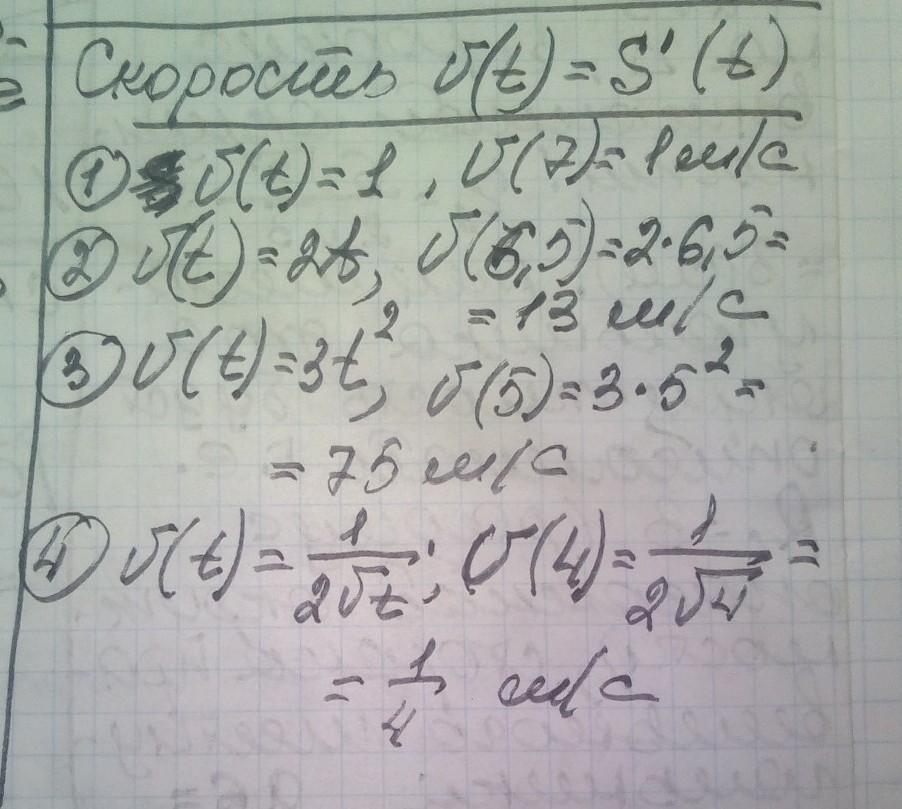 Скорость v(t) = S'(t)
① v(t) = 1, v(7) = 1 м/с
② v(t) = 2t, v(6,5) = 2·6,5 =
= 13 м/с
③ v(t) = 3t², v(5) = 3·5² =
= 75 м/с
④ v(t) = 1/(2√t); v(4) = 1/(2√4) =
= 1/4 м/с